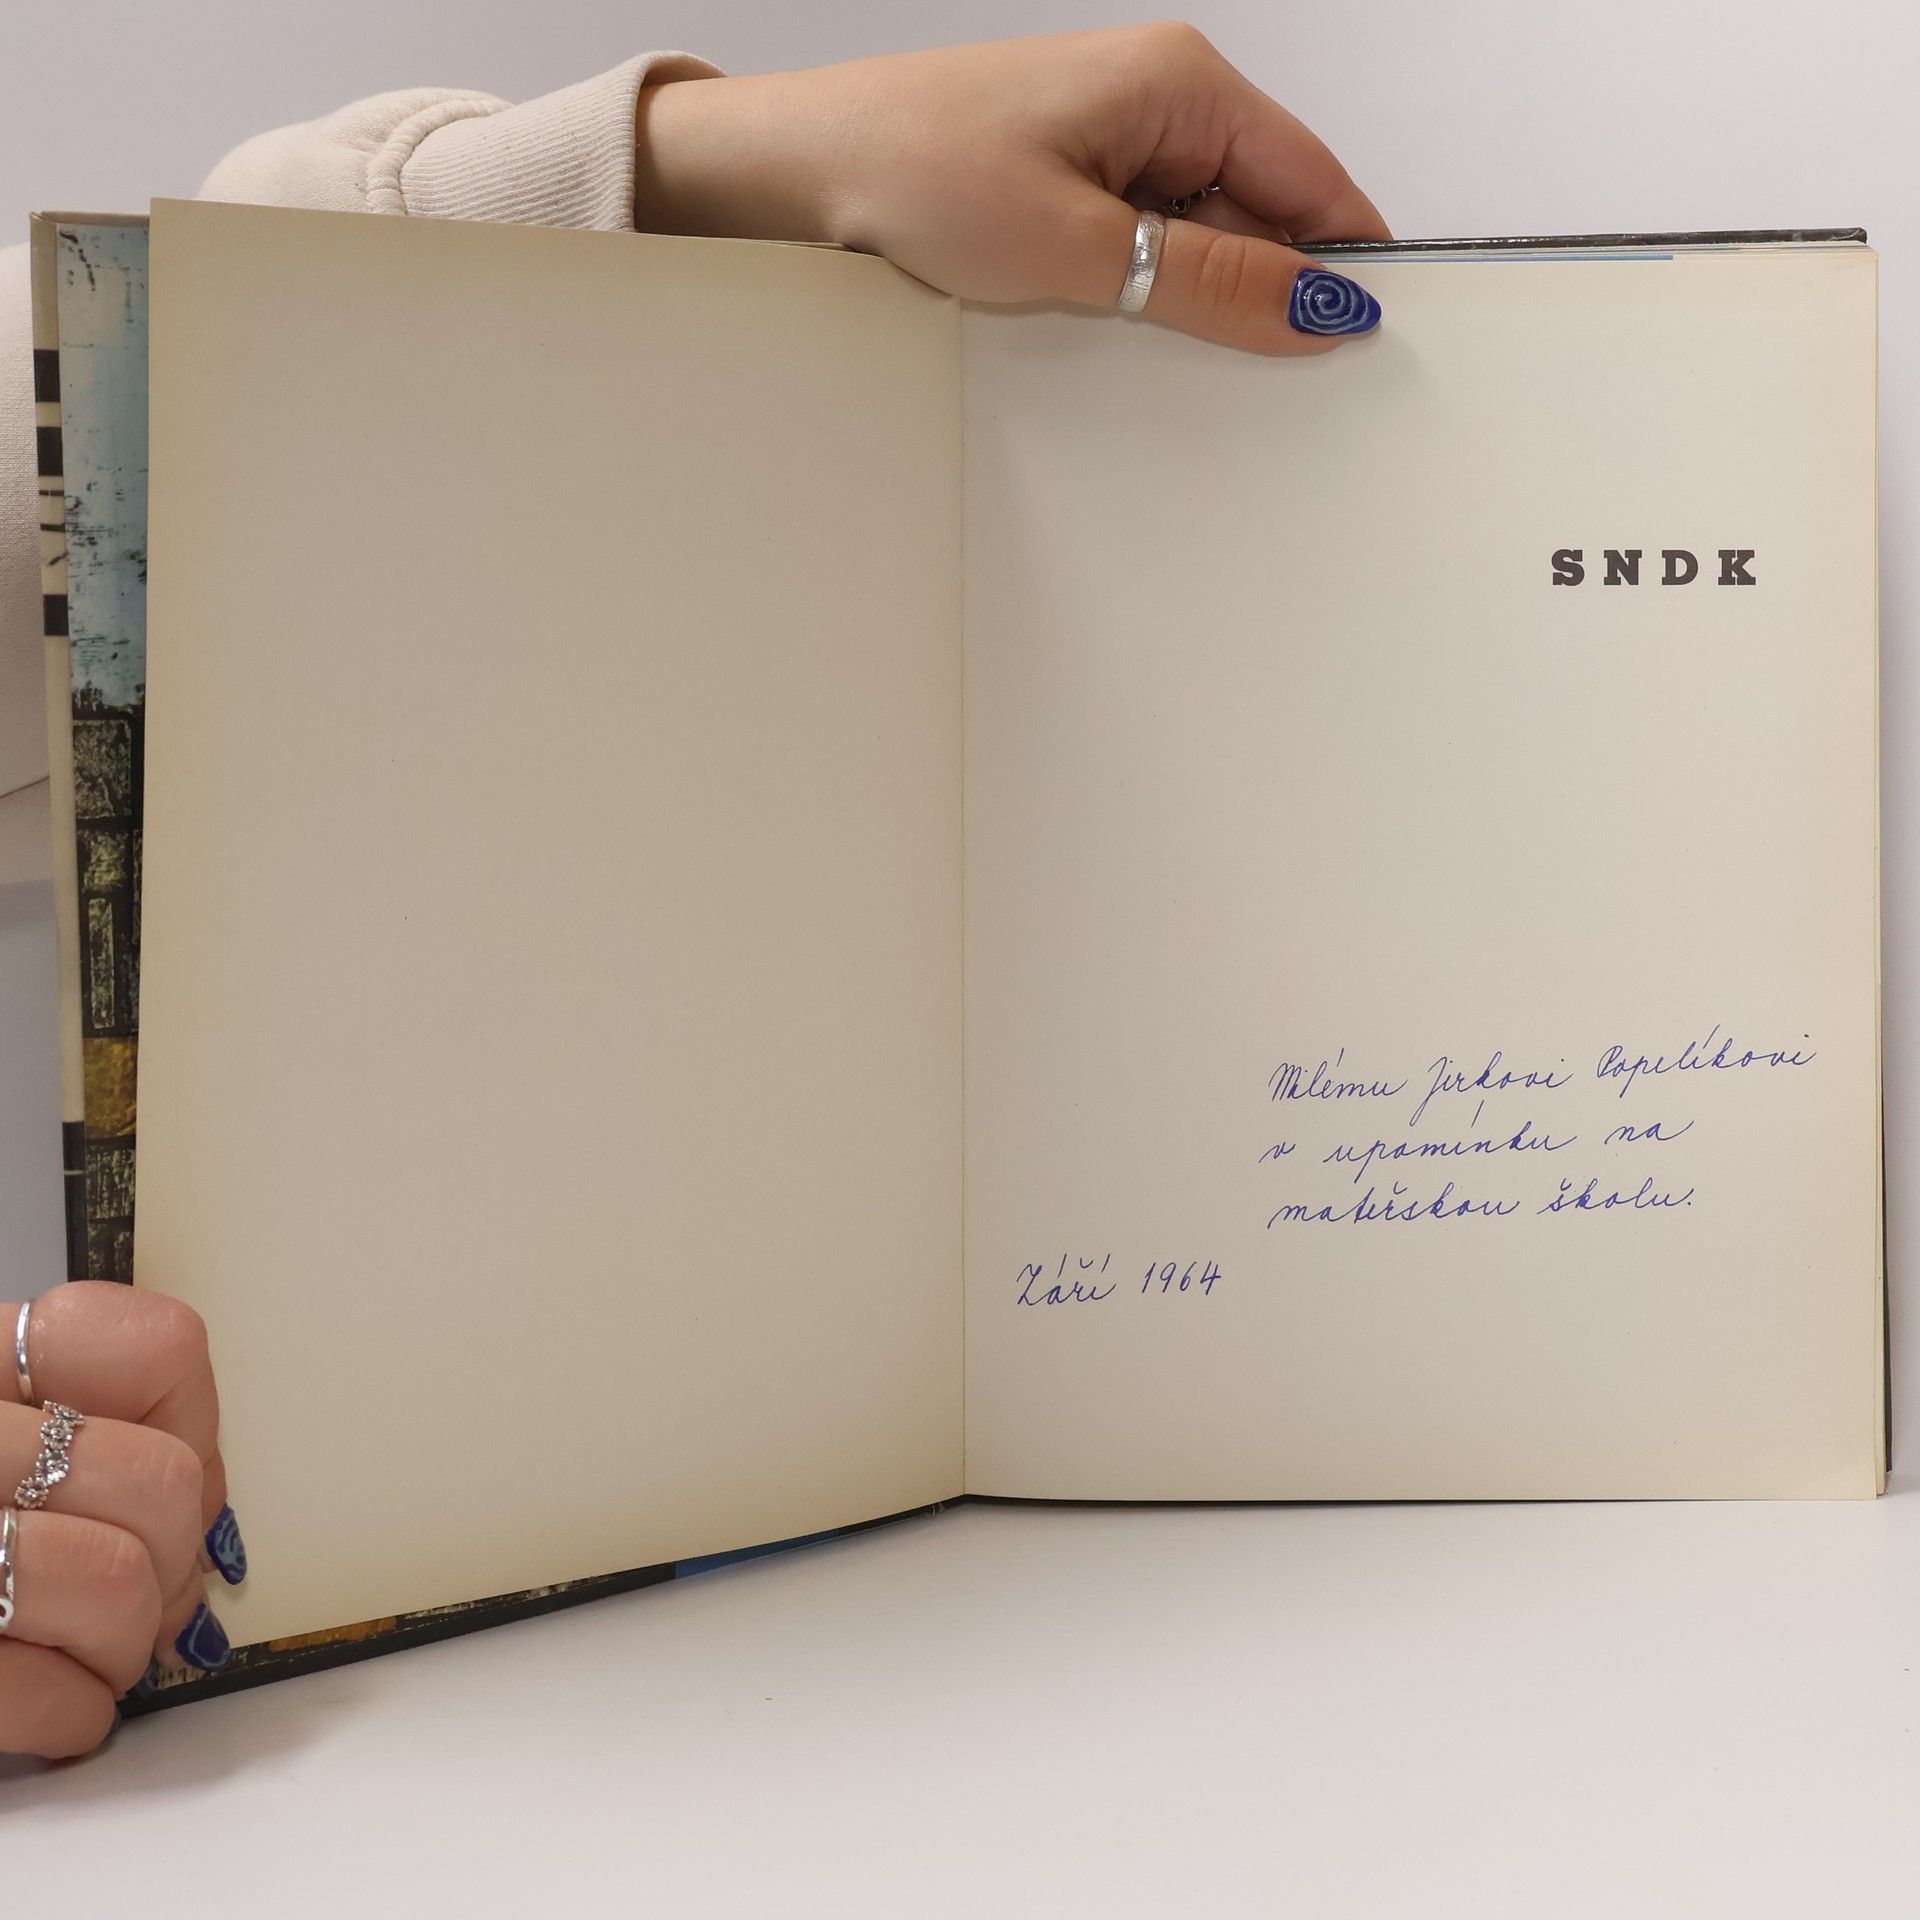 SNDK
Milému Jirkovi Popelíkovi
v upomínku na
mateřskou školu.
Září 1964